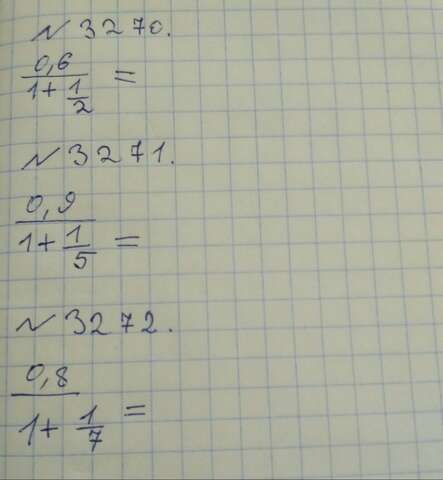 № 3270.
0,6 / 1+1/2 =
№ 3271.
0,9 / 1+1/5 =
№ 3272.
0,8 / 1+1/7 =